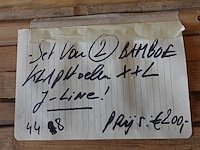 Set Van ② BAMBOE
KLAPstoelen XXL
J-Line!
44 8 Prijs. €200,-